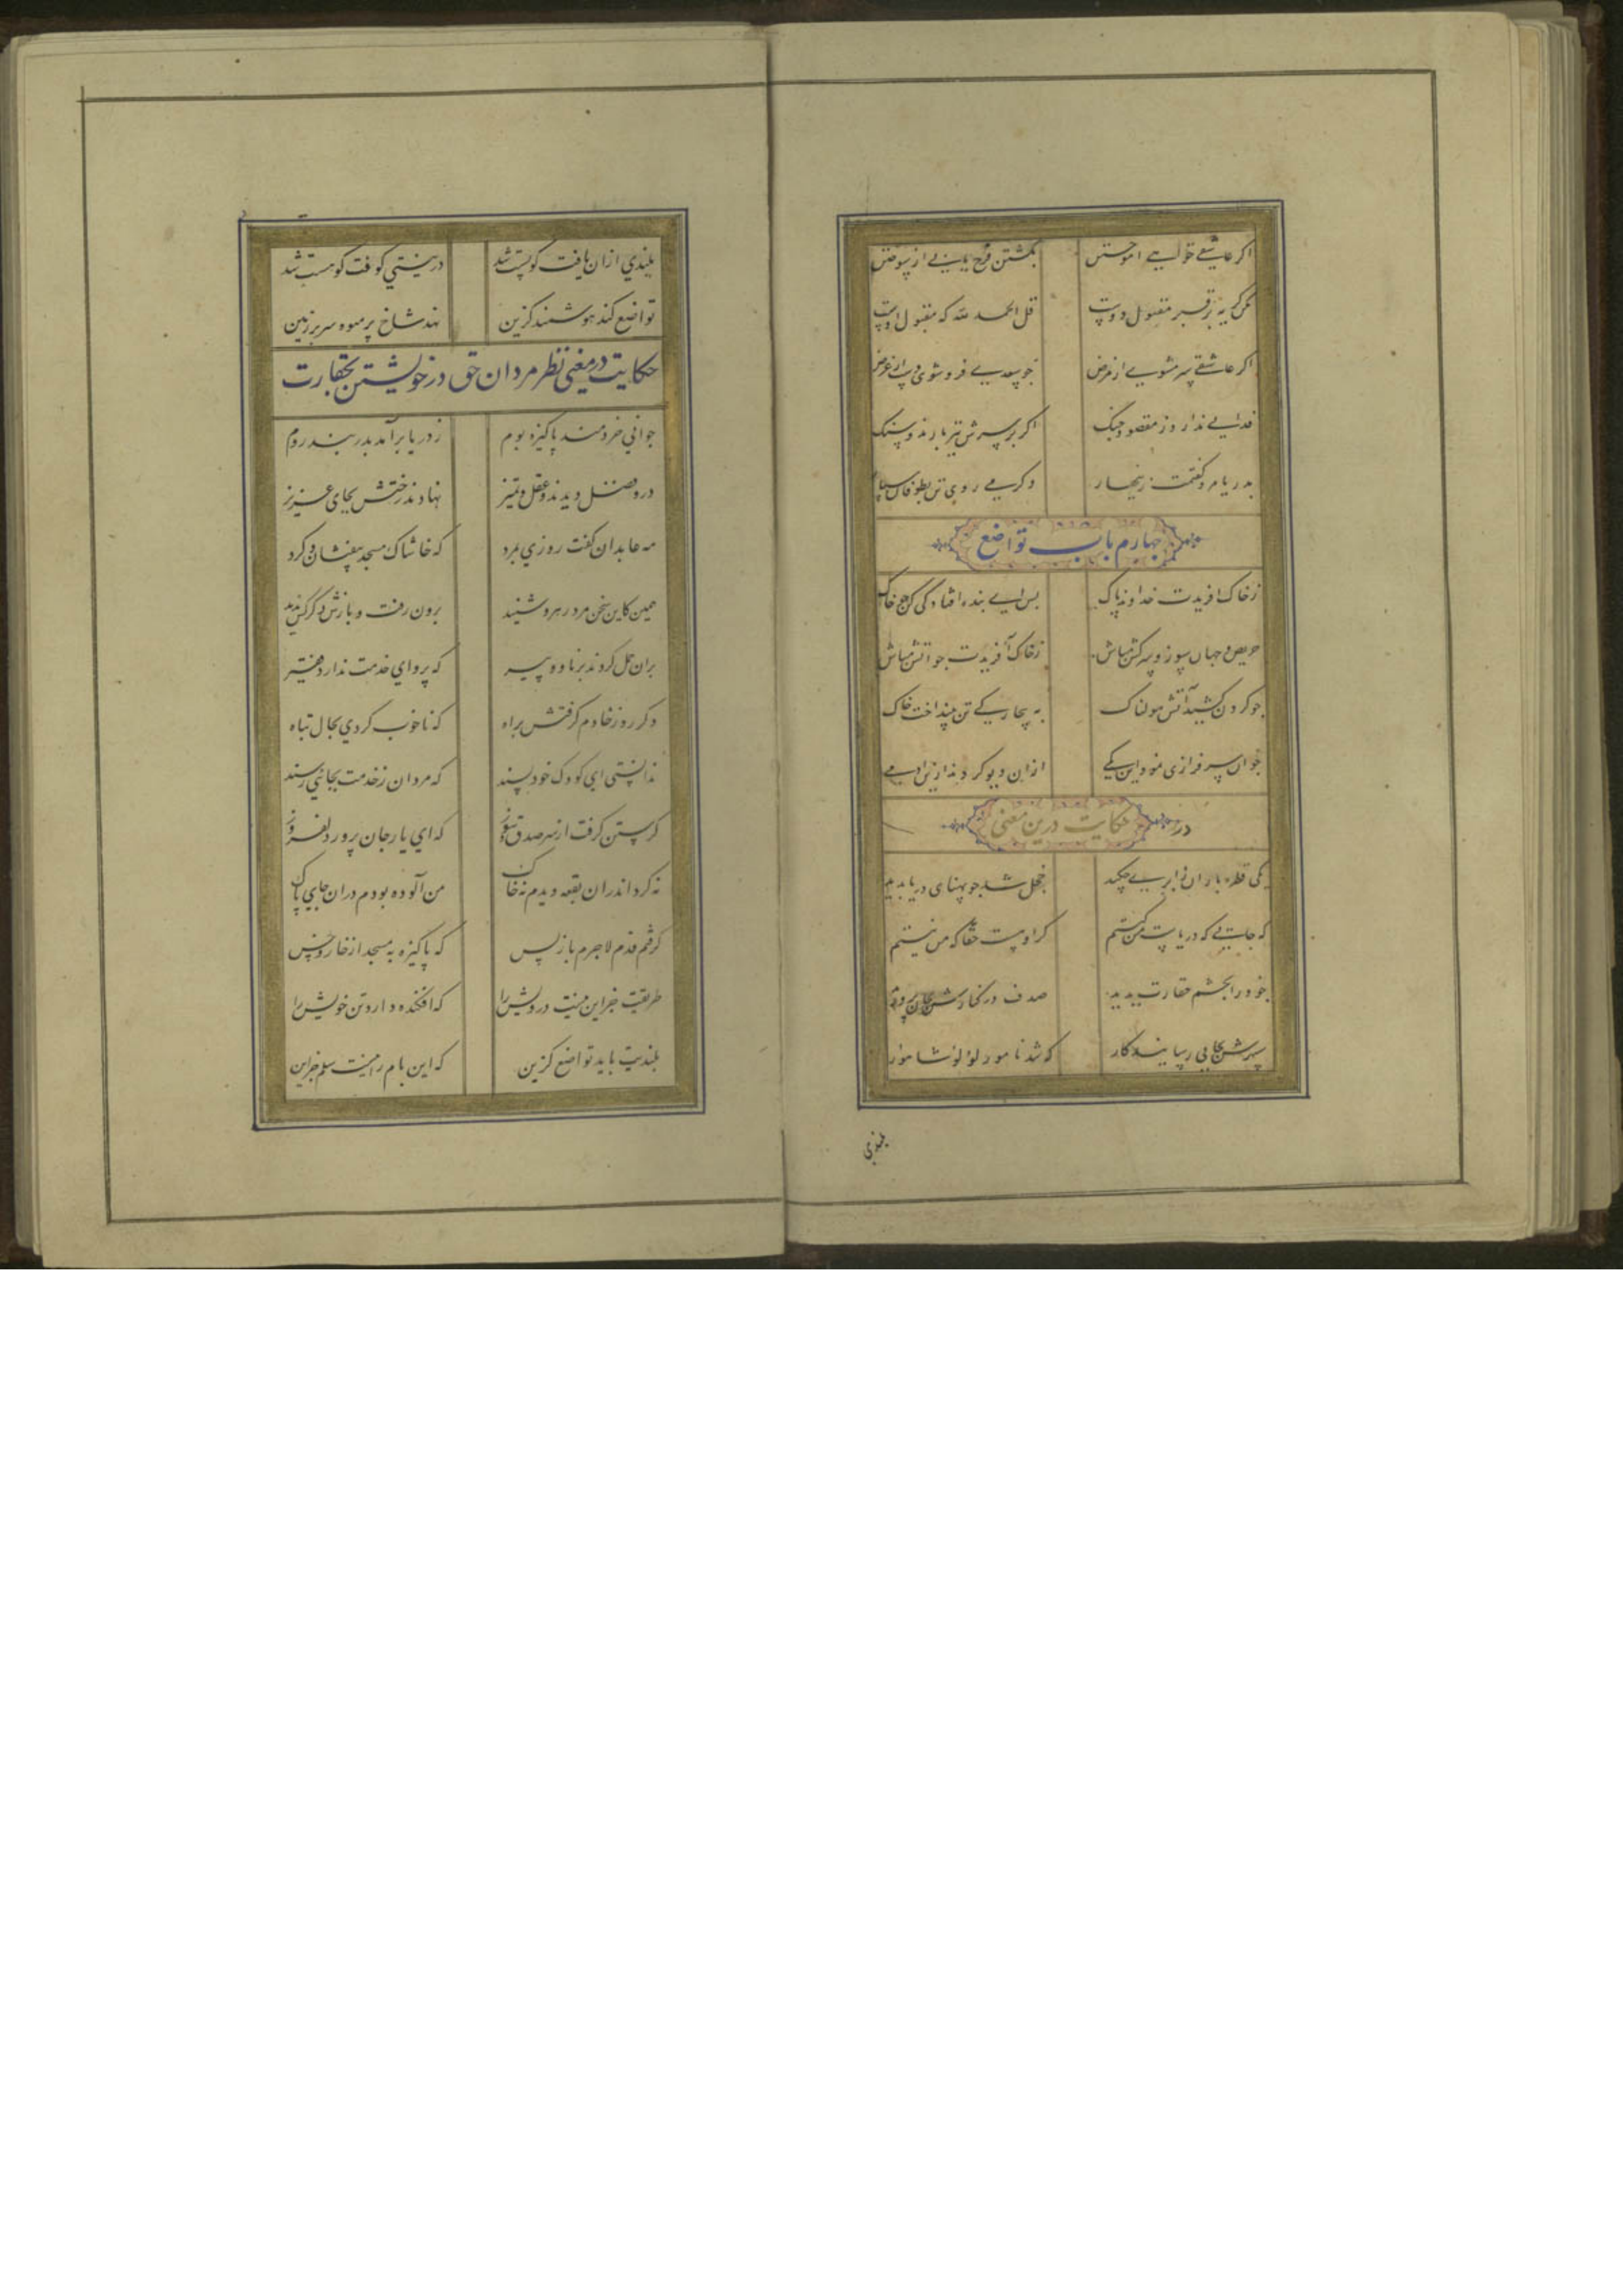 اکر عاشقی خواهی اموختن بکشتن فرج یابی از سوختن
مکن کریه بر قبر مقتول دوست قل الحمد لله که مقبول اوست
اکر عاشقی سر مشوی از مرض چو سعدی فروشوی دست از غرض
فدایی ندارد ز مقصود چنک اکر بر سرش تیر بارند و سنک
بدریا مرو کفتمت زینهار وکر می روی تن بطوفان سپار
چهارم باب تواضع
ز خاک افریدت خداوند پاک پس ای بنده افتادکی کن چو خاک
حریص و جهان سوز و سرکش مباش ز خاک آفریدت چو اتش مباش
چو کردن کشید آتش هولناک به بیچارکی تن بینداخت خاک
چو ان سرفرازی نمود این کمی ازان دیو کردند ازین ادمی
در حکایت درین معنی
یکی قطره باران ز ابری چکید خجل شد چو پهنای دریا بدید
که جایی که دریاست من کیستم کر اوست حقا که من نیستم
چو خود را بچشم حقارت بدید صدف در کنارش بجان پرورید
سپهرش بجایی رسانید کار که شد نامور لؤلؤ شاهوار
بلندی
بلندی ازان یافت کو پست شد در نیستی کوفت کو هست شد
تواضع کند هوشمند کزین نهد شاخ پر میوه سر بر زمین
حکایت در معنی نظر مردان حق در خویشتن بحقارت
جوانی خردمند پاکیزه بوم ز دریا برآمد بدربند روم
درو فضل دیدند و عقل و تمیز نهادند رختش بجای عزیز
مه عابدان کفت روزی بمرد که خاشاک مسجد بیفشان و کرد
همین کاین سخن مرد رهرو شنید برون رفت و بازش دکر کس ندید
بران حمل کردند برنا و پیر که پروای خدمت ندارد فقیر
دکر روز خادم کرفتش براه که ناخوب کردی بحال تباه
ندانستی ای کودک خودپسند که مردان ز خدمت بجائی رسند
کرستن کرفت از سر صدق و سوز که ای یار جان پرور دلفروز
نه کرد اندران بقعه دیدم نه خاک من آلوده بودم دران جای پاک
کرفتم قدم لاجرم باز پس که پاکیزه به مسجد از خار و خس
طریقت جز این نیست درویش را که افکنده دارد تن خویش را
بلندیت باید تواضع کزین که این بام را نیست سلم جز این